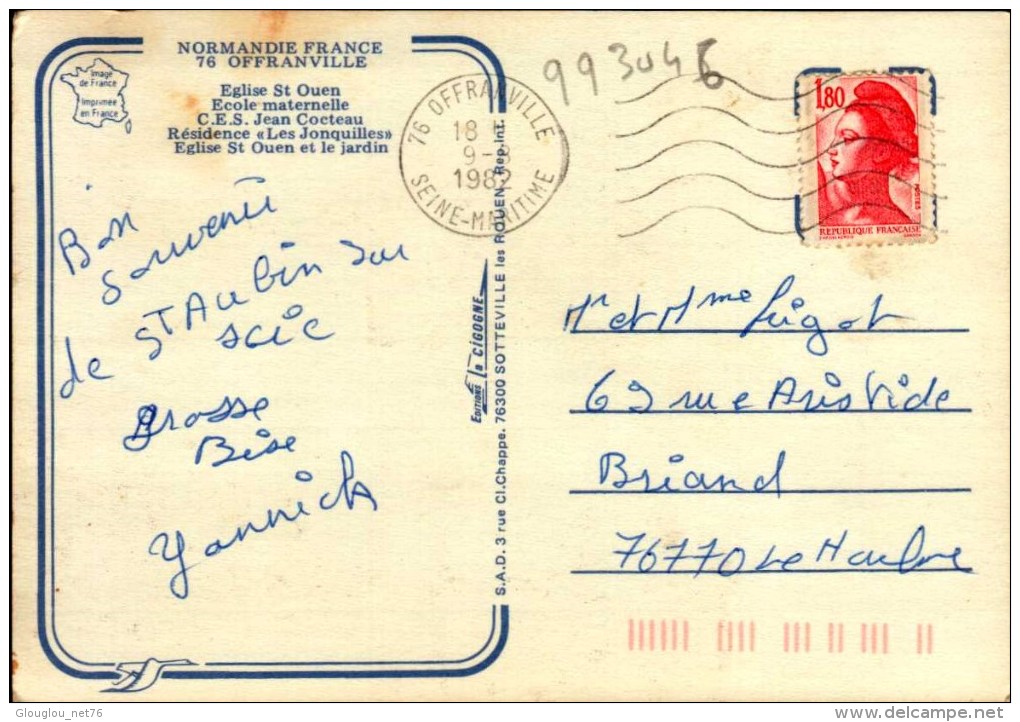 NORMANDIE FRANCE
76 OFFRANVILLE
Image
de France
Imprimée
en France
Eglise St Ouen
Ecole maternelle
C.E.S. Jean Cocteau
Résidence «Les Jonquilles»
Eglise St Ouen et le jardin
Bon
Souvenir
de St Aubin sur
scie
grosse
Bise
Yannick
EDITIONS la CIGOGNE
S.A.D. 3 rue Cl.Chappe. 76300 SOTTEVILLE les ROUEN Rep.Int.
76 OFFRANVILLE
18
9-8
1982
SEINE-MARITIME
993046
1,80
POSTES
REPUBLIQUE FRANÇAISE
Mr et Mme
69 rue Aristide
Briand
76770 Le Havre
Glouglou_net76
www.delcampe.net